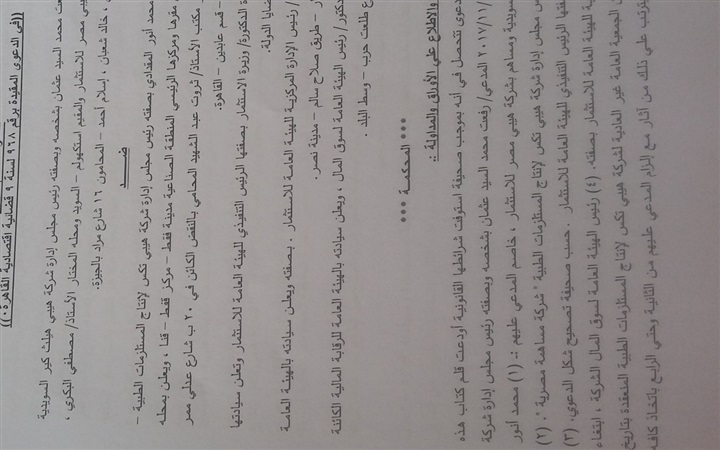 ((في الدعوى المقيدة برقم ٩٦٨ لسنة ٩ قضائية اقتصادية القاهرة.))
محمد السيد عثمان بشخصه وبصفته رئيس مجلس إدارة شركة هيبي هيلث كير السويدية
هيبي مصر للاستثمار والمقيم استكهولم - السويد ومحله المختار الأستاذ/ مصطفى البكري ،
، خالد شعبان ، إسلام أحمد - المحامون ١٦ شارع مراد بالجيزة.
ضــــد
محمد أنور المقدادي بصفته رئيس مجلس إدارة شركة هيبي تكس لإنتاج المستلزمات الطبية -
مقرها ومركزها الرئيسي المنطقة الصناعية مدينة فقط - مركز فقط - قنا ، ويعلن بمحله
مكتب الأستاذ/ ثروت عبد الشهيد المحامي بالنقض الكائن في ٢٠ ب شارع عدلي مصر
- قسم عابدين - القاهرة.
الدكتورة/ وزيرة الاستثمار بصفتها الرئيس التنفيذي للهيئة العامة للاستثمار وتعلن سيادتها
قضايا الدولة.
/ رئيس الإدارة المركزية للهيئة العامة للاستثمار . بصفته ويعلن سيادته بالهيئة العامة
- طريق صلاح سالم - مدينة نصر.
الدكتور/ رئيس الهيئة العامة لسوق المال ، ويعلن سيادته بالهيئة العامة للرقابة المالية الكائنة
طلعت حرب - وسط البلد .
*** المحكمـــة ***
والاطلاع على الأوراق والمداولة :.
دعوى تتحصل في أنه بموجب صحيفة استوفت شرائطها القانونية أودعت قلم كتاب هذه
٢٠١٧/١١/ المدعي/ رفعت محمد السيد عثمان بشخصه وبصفته رئيس مجلس إدارة شركة
السويدية ومساهم بشركة هيبي مصر للاستثمار ، خاصم المدعي عليهم :. (١) محمد أنور
رئيس مجلس إدارة شركة هيبي تكس لإنتاج المستلزمات الطبية " شركة مساهمة مصرية ". (٢)
بصفتها الرئيس التنفيذي للهيئة العامة للاستثمار . حسب صحيفة تصحيح شكل الدعوى. (٣)
للهيئة العامة للاستثمار بصفته. (٤) رئيس الهيئة العامة لسوق المال الشركة ، ابتغاء
الجمعية العامة غير العادية لشركة هيبي تكس لإنتاج المستلزمات الطبية المنعقدة بتاريخ
يترتب على ذلك من آثار مع إلزام المدعي عليهم من الثانية وحتى الرابع باتخاذ كافة